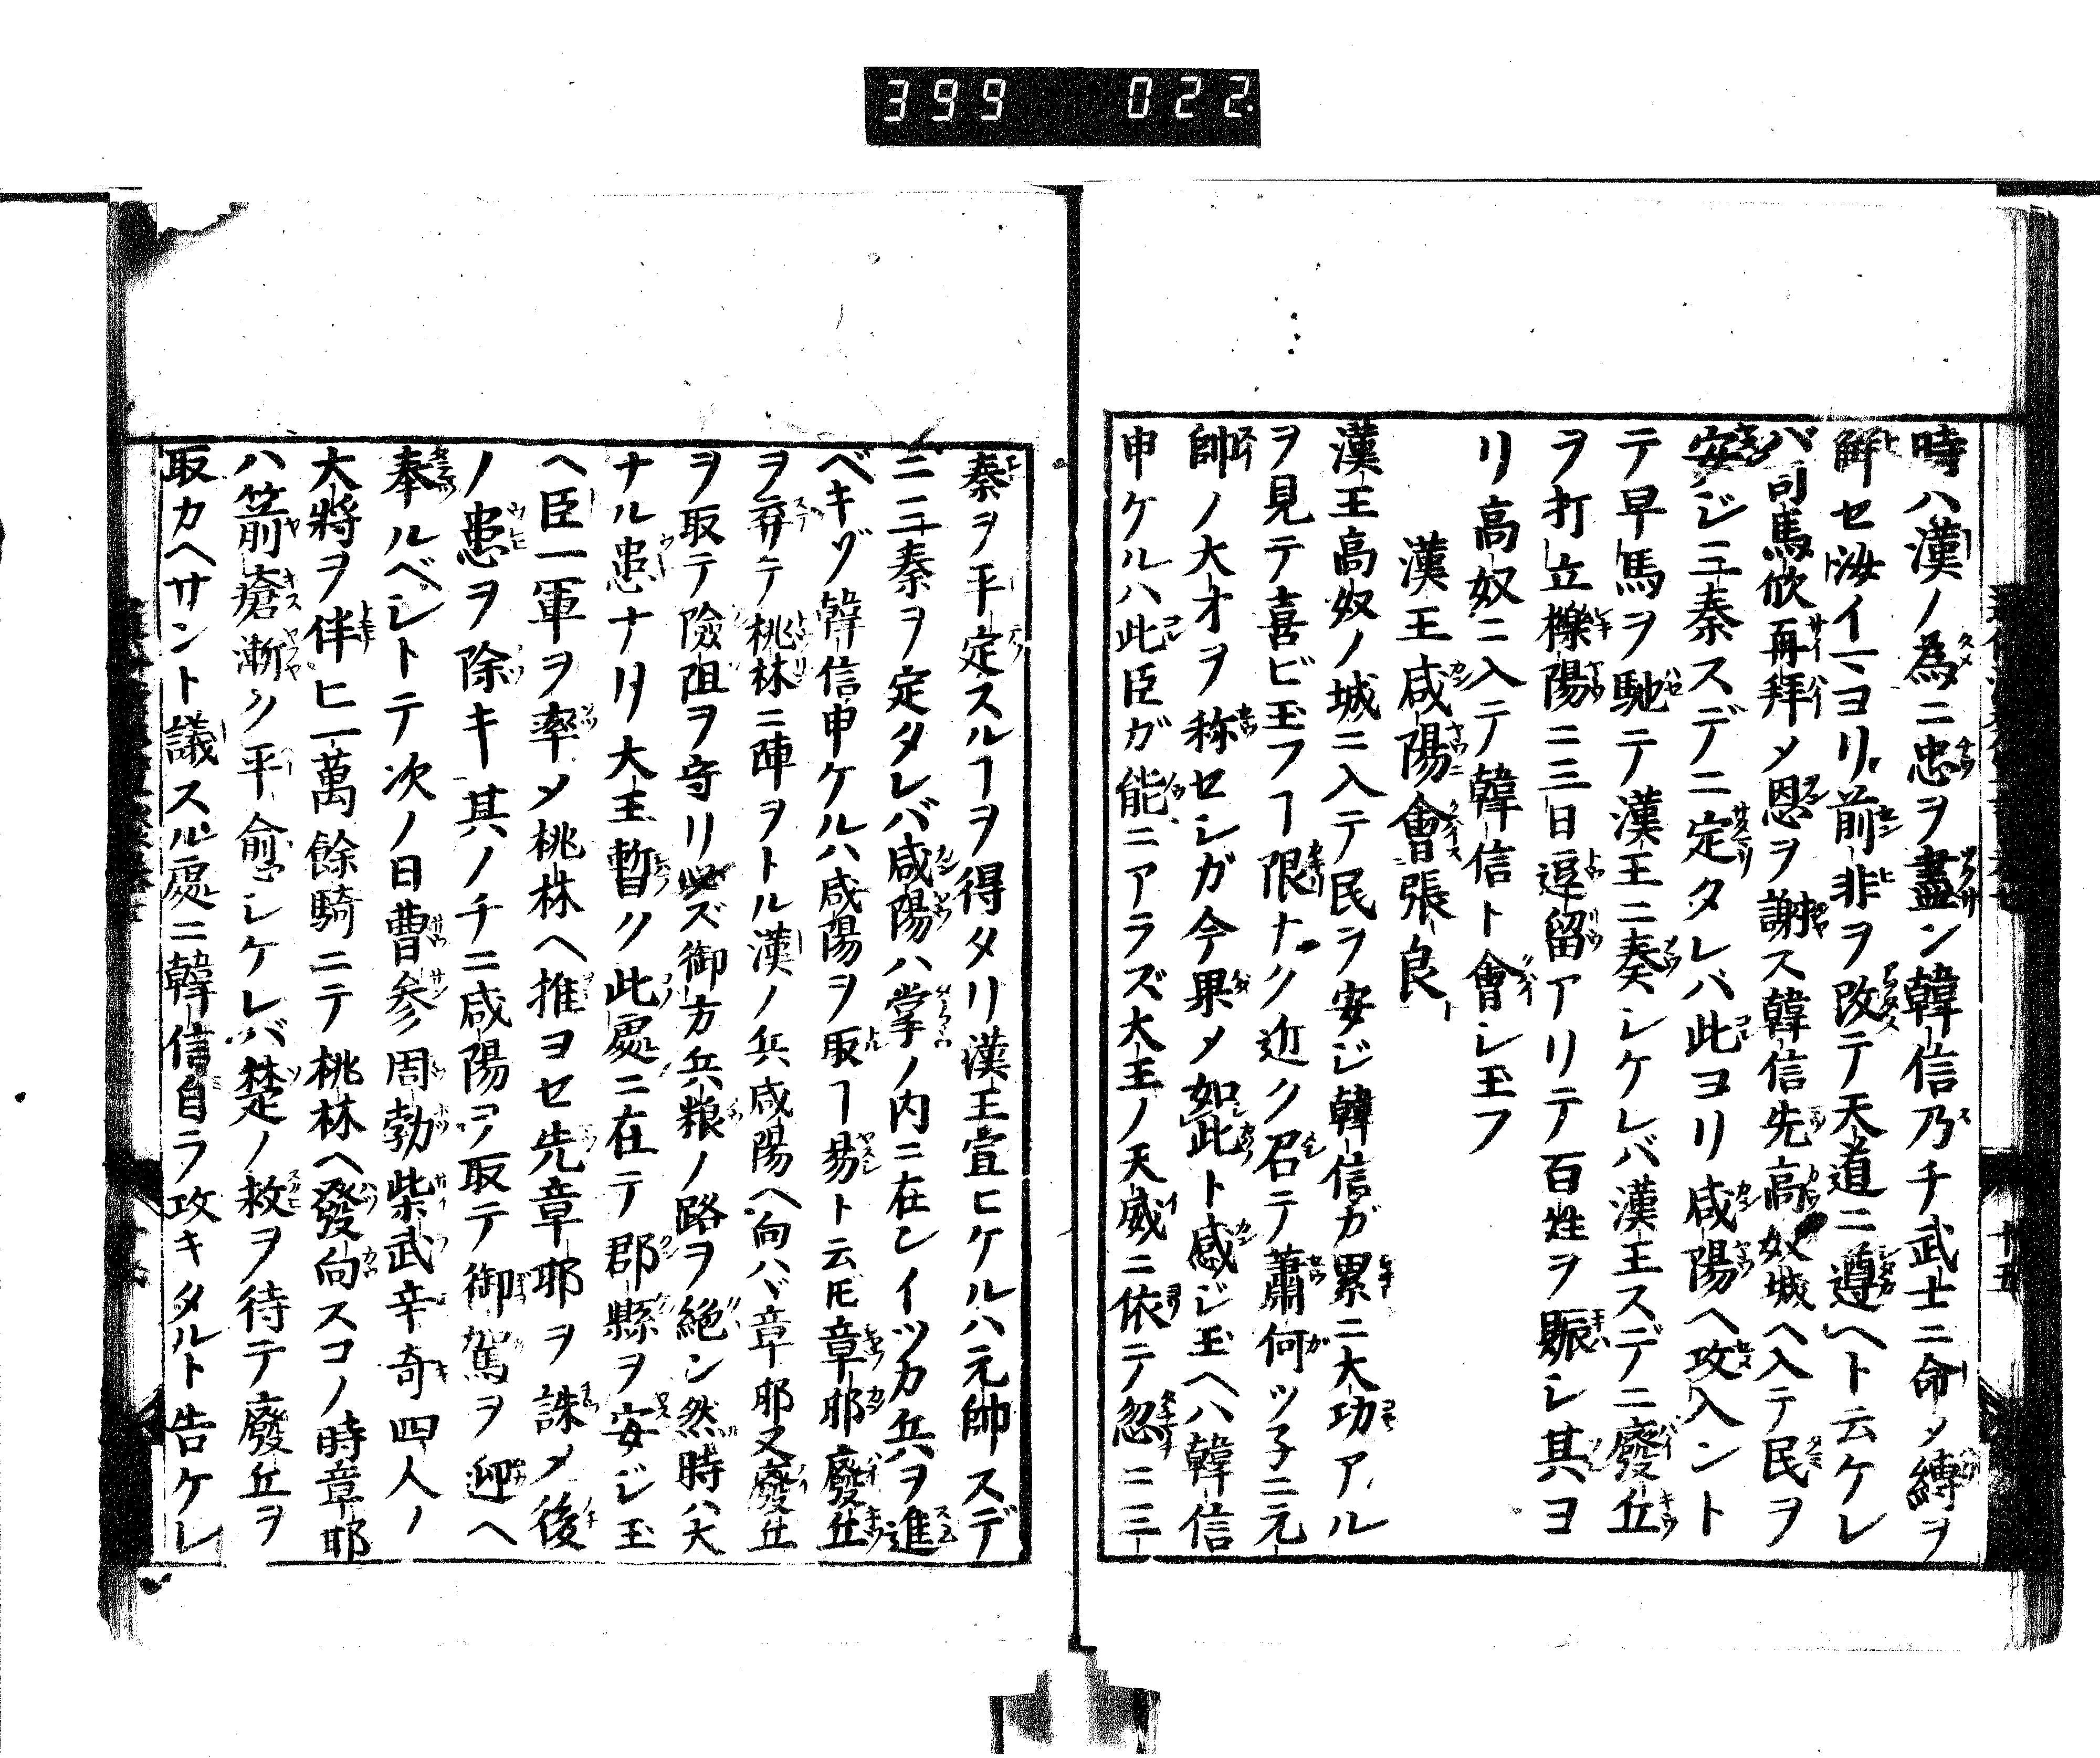 399 022
時ハ漢ノ為ニ忠ヲ盡ン韓信乃チ武士ニ命メ縛ヲ
解セ汝イマヨリ前非ヲ改テ天道ニ遵ヘト云ケレ
バ司馬欣再拜メ恩ヲ謝ス韓信先高奴城ヘ入テ民ヲ
安ジ三秦スデニ定タレバ此ヨリ咸陽ヘ攻入ント
テ早馬ヲ馳テ漢王ニ奏シケレバ漢王スデニ廢丘
ヲ打立櫟陽ニ三日逗留アリテ百姓ヲ賑シ其ヨ
リ高奴ニ入テ韓信ト會シ玉フ
漢王咸陽會張良
漢王高奴ノ城ニ入テ民ヲ安ジ韓信ガ累ニ大功アル
ヲ見テ喜ビ玉フヿ限ナク近ク召テ蕭何ツ子ニ元
帥ノ大才ヲ称セシガ今果メ如此ト感ジ玉ヘハ韓信
申ケルハ此臣ガ能ニアラズ大王ノ天威ニ依テ忽ニ三
秦ヲ平定スルヿヲ得タリ漢王宣ヒケルハ元帥スデ
ニ三秦ヲ定タレバ咸陽ハ掌ノ内ニ在ンイツカ兵ヲ進
ベキゾ韓信申ケルハ咸陽ヲ取ヿ易ト云𪜈章耶廢丘
ヲ弃テ桃林ニ陣ヲトル漢ノ兵咸陽ヘ向ハヾ章耶又廢丘
ヲ取テ險阻ヲ守リ必ズ御方兵粮ノ路ヲ絶ン然時ハ大
ナル患ナリ大王暫ク此處ニ在テ郡縣ヲ安ジ玉
ヘ臣一軍ヲ率メ桃林ヘ推ヨセ先章耶ヲ誅メ後
ノ患ヲ除キ其ノチニ咸陽ヲ取テ御駕ヲ迎ヘ
奉ルベシトテ次ノ日曹参周勃柴武辛奇四人ノ
大將ヲ伴ヒ一萬餘騎ニテ桃林ヘ發向スコノ時章耶
ハ箭瘡漸ク平愈シケレバ楚ノ救ヲ待テ廢丘ヲ
取カヘサント議スル處ニ韓信自ラ攻キタルト告ケレ